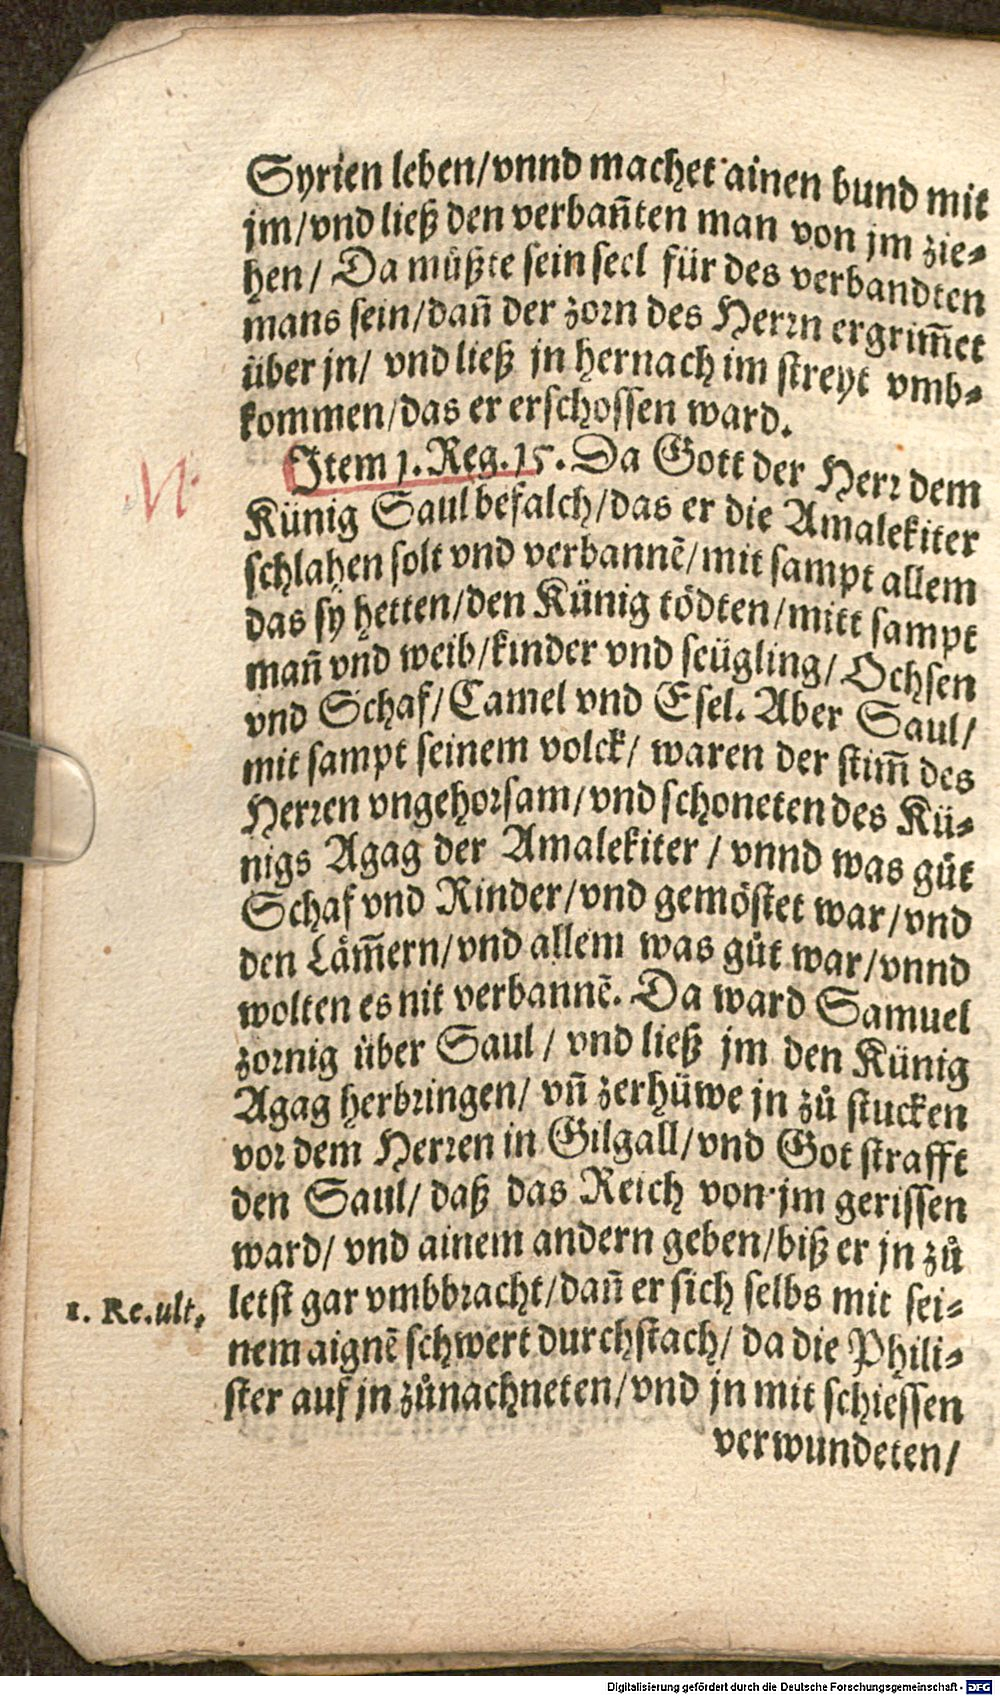 Syrien leben/vnnd machet ainen bund mit
jm/vnd ließ den verbañten man von jm zie-
hen/ Da müßte sein seel für des verbandten
mans sein/dañ der zorn des Herrn ergrim̄et
über jn/ vnd ließ jn hernach im streyt vmb-
kommen/das er erschossen ward.
Item 1. Reg. 15. Da Gott der Herr dem
Künig Saul befalch/das er die Amalekiter
schlahen solt vnd verbannẽ/mit sampt allem
das sÿ hetten/den Künig tödten/mitt sampt
mañ vnd weib/kinder vnd seügling/ Ochsen
vnd Schaf/Camel vnd Esel. Aber Saul/
mit sampt seinem volck/ waren der stim̄ des
Herren vngehorsam/vnd schoneten des Kü-
nigs Agag der Amalekiter / vnnd was gůt
Schaf vnd Rinder/vnd gemöstet war/vnd
den Läm̄ern/vnd allem was gůt war/vnnd
wolten es nit verbannẽ. Da ward Samuel
zornig über Saul/ vnd ließ jm den Künig
Agag herbringen/ vñ zerhüwe jn zů stucken
vor dem Herren in Gilgall/vnd Got strafft
den Saul/ daß das Reich von jm gerissen
ward/ vnd ainem andern geben/biß er jn zů
1. Re. ult. letst gar vmbbracht/dañ er sich selbs mit sei-
nem aignẽ schwert durchstach/ da die Phili-
ster auf jn zůnachneten/vnd jn mit schiessen
verwundeten/
Digitalisierung gefördert durch die Deutsche Forschungsgemeinschaft - DFG